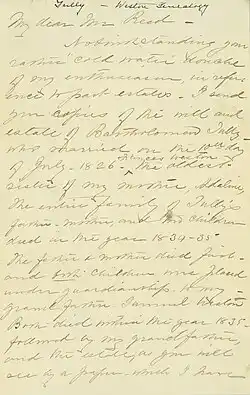 Tully - Weston Genealogy
My dear Mr Read -
Notwithstanding your
rather cold water douche
of my enthusiasm, in refer
ence to past estates. I send
you copies of the will and
estate of Bartholomew Tully -
who married on the 10th day
of July - 1826 - Princess Weston
the oldest
sister of my mother,
The entire family of Tully's
father - mother, and two children
died in the year 1834-35
The father & mother died first -
and both children were placed
under guardianship to my
grand father Samuel Weston
Both died within the year 1835
followed by my grandfather,
and the estate, as you will
see by a paper which I have